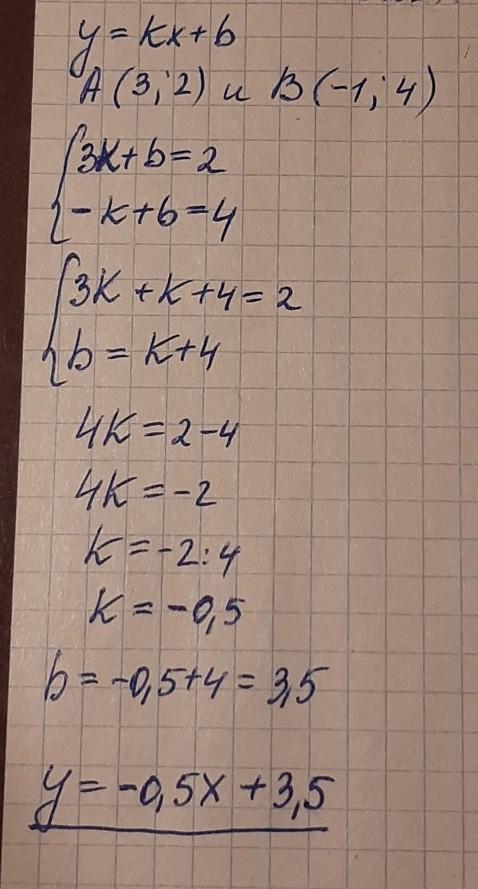 y = kx + b
A (3; 2) и B (-1; 4)
{3k + b = 2
{-k + b = 4
{3k + k + 4 = 2
{b = k + 4
4k = 2 - 4
4k = -2
k = -2 : 4
k = -0,5
b = -0,5 + 4 = 3,5
y = -0,5x + 3,5